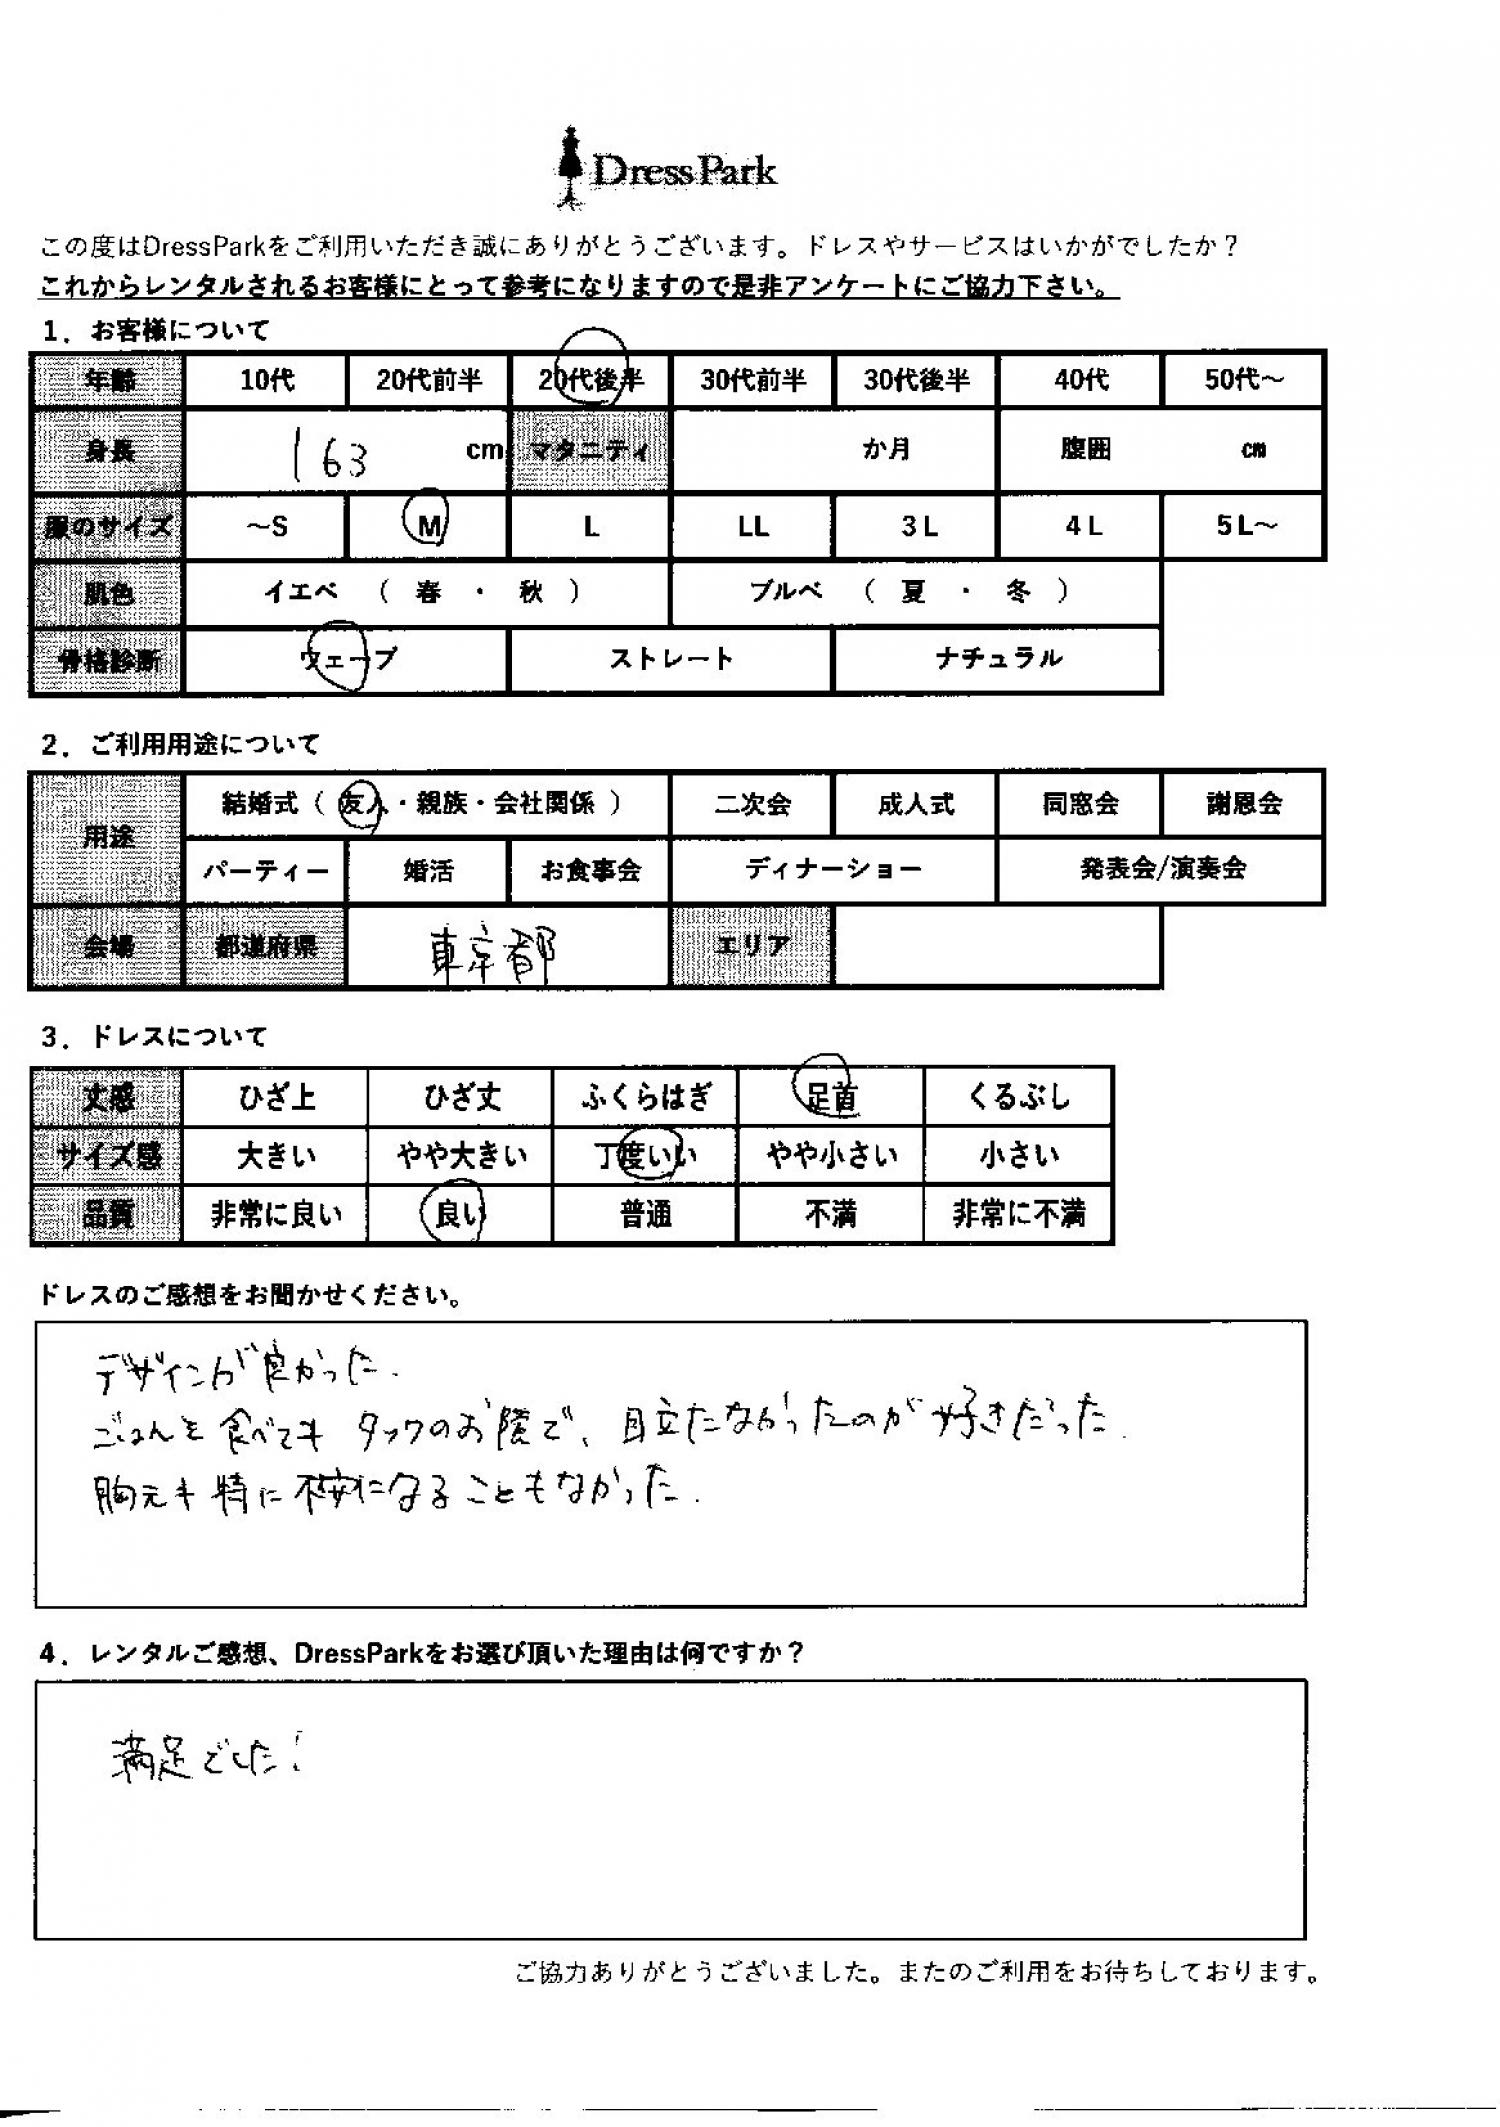 DressPark
この度はDressParkをご利用いただき誠にありがとうございます。ドレスやサービスはいかがでしたか？
これからレンタルされるお客様にとって参考になりますので是非アンケートにご協力下さい。
1．お客様について
年齢 10代 20代前半 20代後半 30代前半 30代後半 40代 50代～
身長 163 cm マタニティ か月 腹囲 cm
服のサイズ ～S M L LL 3L 4L 5L～
肌色 イエベ （ 春 ・ 秋 ） ブルベ （ 夏 ・ 冬 ）
骨格診断 ウェーブ ストレート ナチュラル
2．ご利用用途について
用途 結婚式（ 友人・親族・会社関係 ） 二次会 成人式 同窓会 謝恩会
パーティー 婚活 お食事会 ディナーショー 発表会/演奏会
会場 都道府県 東京都 エリア
3．ドレスについて
丈感 ひざ上 ひざ丈 ふくらはぎ 足首 くるぶし
サイズ感 大きい やや大きい 丁度いい やや小さい 小さい
品質 非常に良い 良い 普通 不満 非常に不満
ドレスのご感想をお聞かせください。
デザインが良かった.
ごはんを食べても タックのお陰で、目立たなかったのが好きだった.
胸元も特に不安になることもなかった.
4．レンタルご感想、DressParkをお選び頂いた理由は何ですか？
満足でした!
ご協力ありがとうございました。またのご利用をお待ちしております。